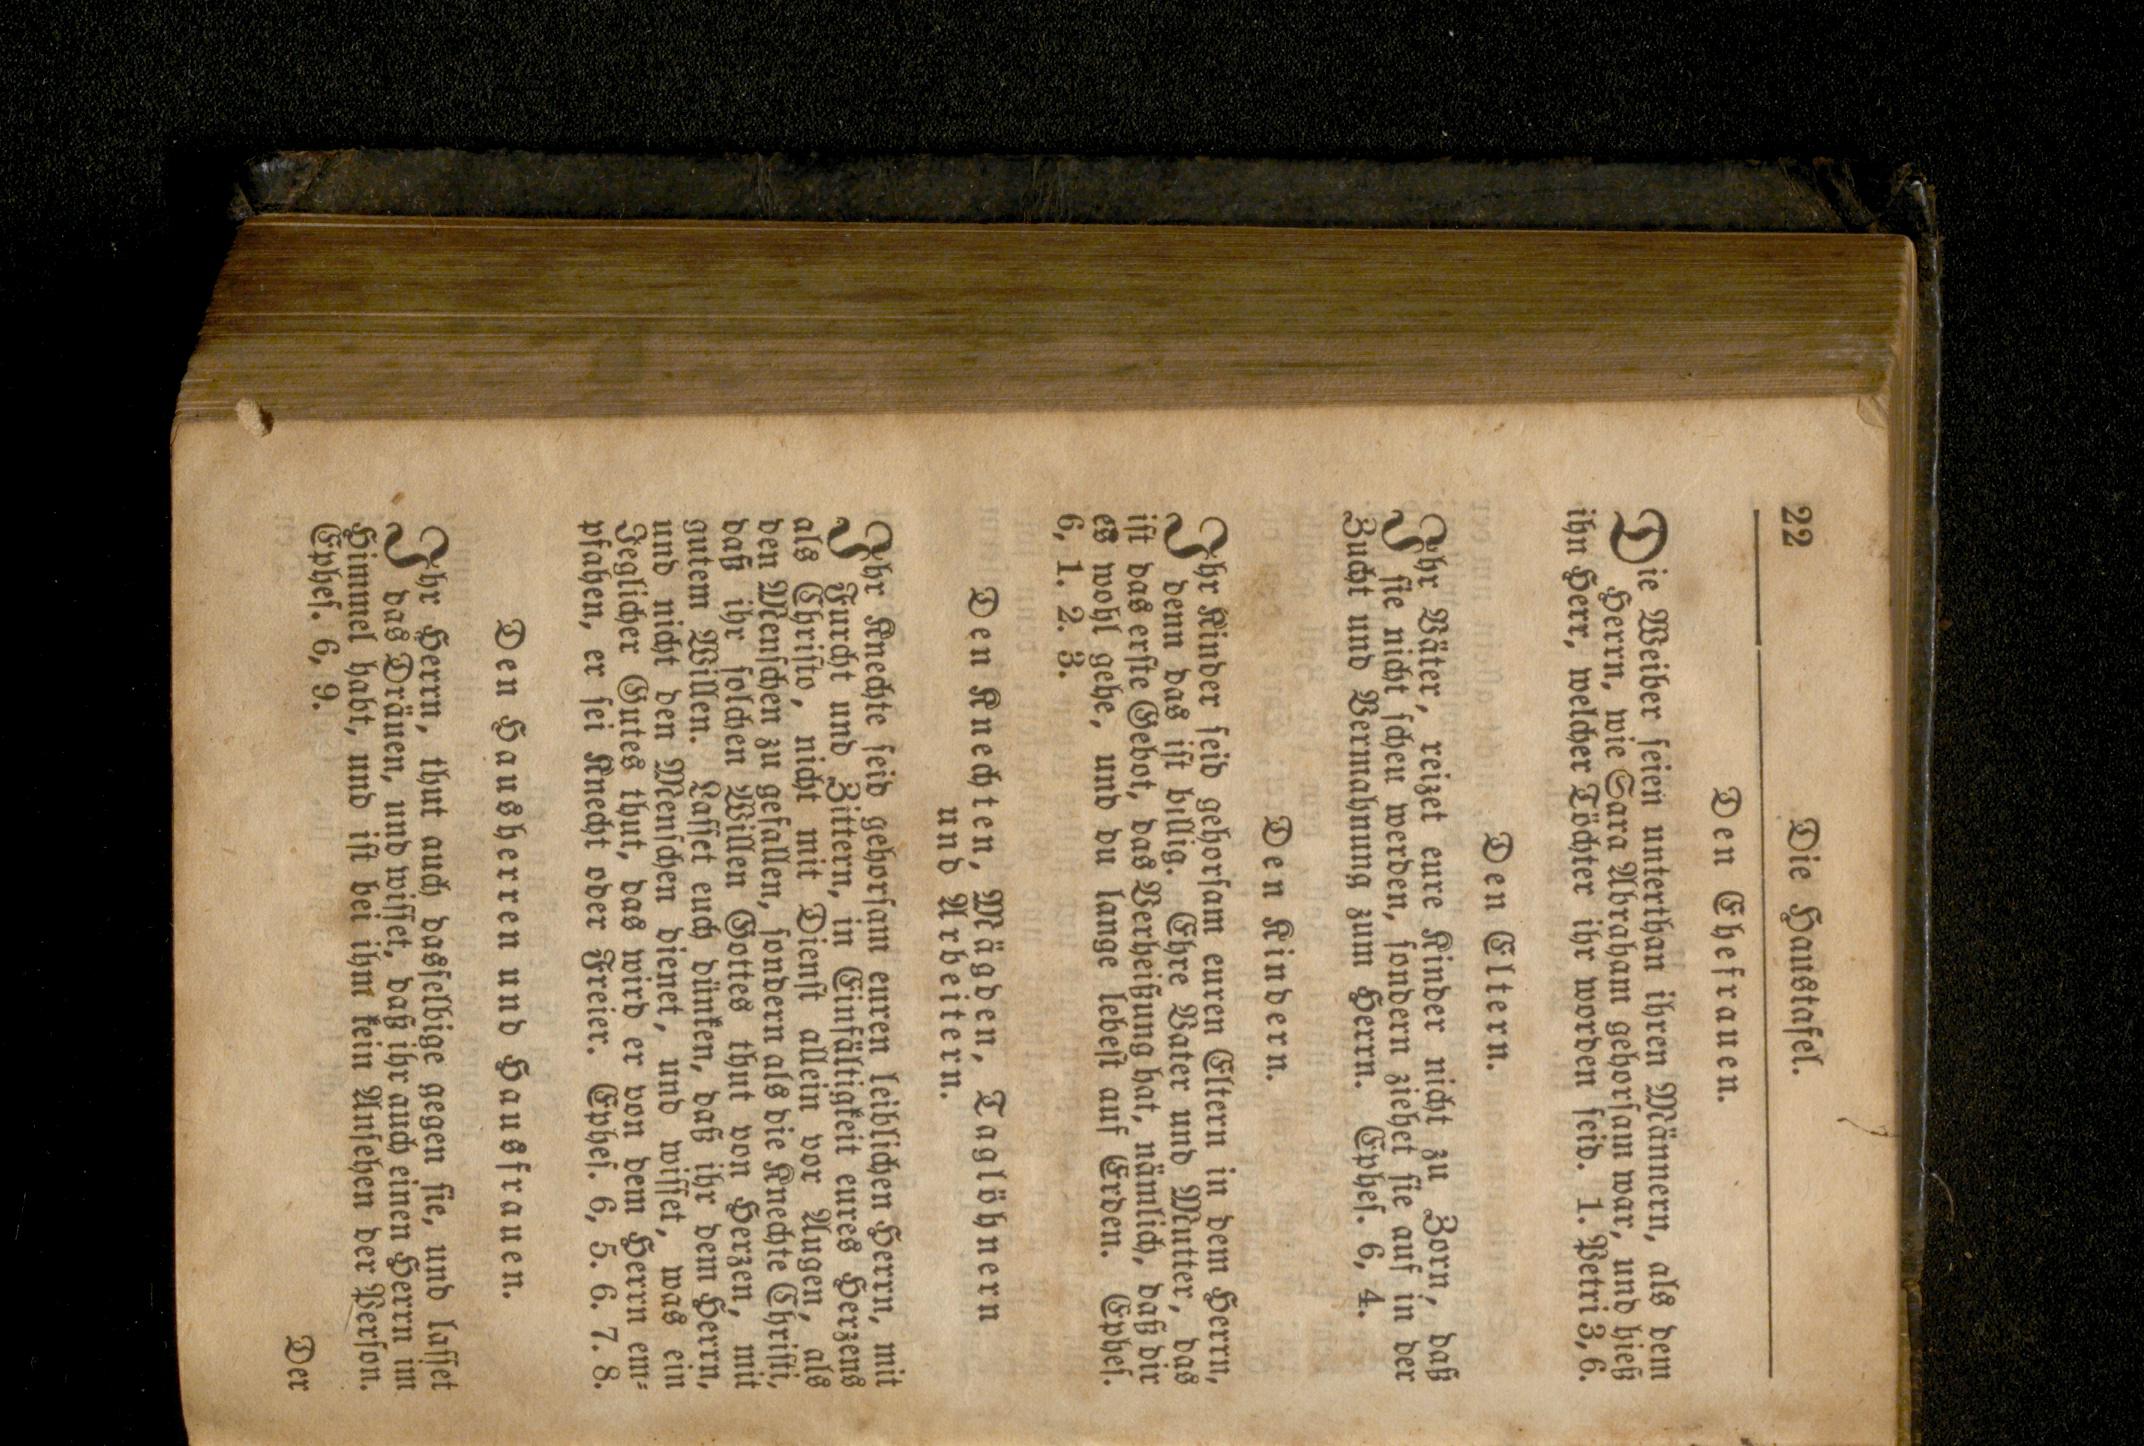 22
Die Haustafel.
Den Ehefrauen.
Die Weiber seien unterthan ihren Männern, als dem
Herrn, wie Sara Abraham gehorsam war, und hieß
ihn Herr, welcher Töchter ihr worden seid. 1. Petri 3, 6.
Den Eltern.
Ihr Väter, reizet eure Kinder nicht zu Zorn, daß
sie nicht scheu werden, sondern ziehet sie auf in der
Zucht und Vermahnung zum Herrn. Ephes. 6, 4.
Den Kindern.
Ihr Kinder seid gehorsam euren Eltern in dem Herrn,
denn das ist billig. Ehre Vater und Mutter, das
ist das erste Gebot, das Verheißung hat, nämlich, daß dir
es wohl gehe, und du lange lebest auf Erden. Ephes.
6, 1. 2. 3.
Den Knechten, Mägden, Taglöhnern
und Arbeitern.
Ihr Knechte seid gehorsam euren leiblichen Herrn, mit
Furcht und Zittern, in Einfältigkeit eures Herzens
als Christo, nicht mit Dienst allein vor Augen, als
den Menschen zu gefallen, sondern als die Knechte Christi,
daß ihr solchen Willen Gottes thut von Herzen, mit
gutem Willen. Lasset euch dünken, daß ihr dem Herrn,
und nicht den Menschen dienet, und wisset, was ein
Jeglicher Gutes thut, das wird er von dem Herrn em-
pfahen, er sei Knecht oder Freier. Ephes. 6, 5. 6. 7. 8.
Den Hausherren und Hausfrauen.
Ihr Herrn, thut auch dasselbige gegen sie, und lasset
das Dräuen, und wisset, daß ihr auch einen Herrn im
Himmel habt, und ist bei ihm kein Ansehen der Person.
Ephes. 6, 9.
Der